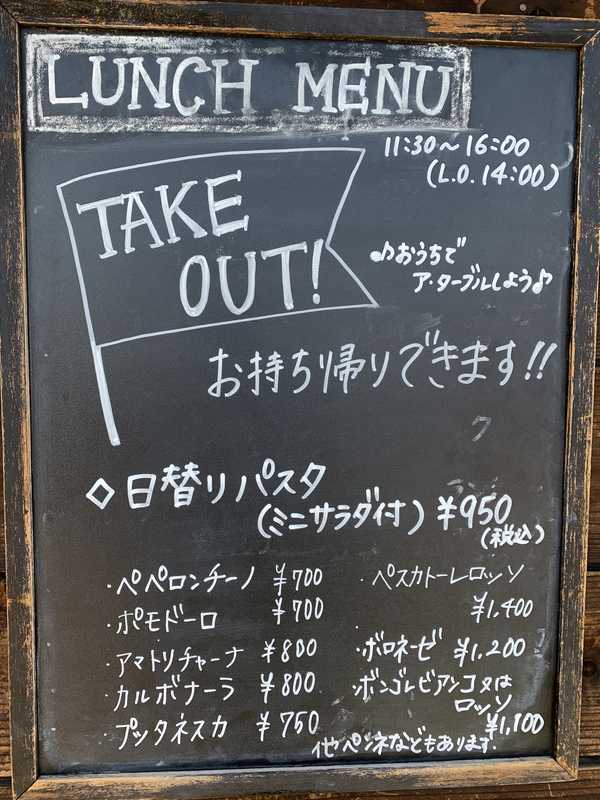 LUNCH MENU
11:30〜16:00
(L.O. 14:00)
TAKE
OUT!
♪おうちで
ア・ターブルしよう♪
お持ち帰りできます!!
◇日替りパスタ
(ミニサラダ付) ¥950
(税込)
・ペペロンチーノ ¥700
・ポモドーロ ¥700
・アマトリチャーナ ¥800
・カルボナーラ ¥800
・プッタネスカ ¥750
・ペスカトーレロッソ
¥1,400
・ボロネーゼ ¥1,200
・ボンゴレビアンコ又は
ロッソ
¥1,100
他ペンネなどもあります.